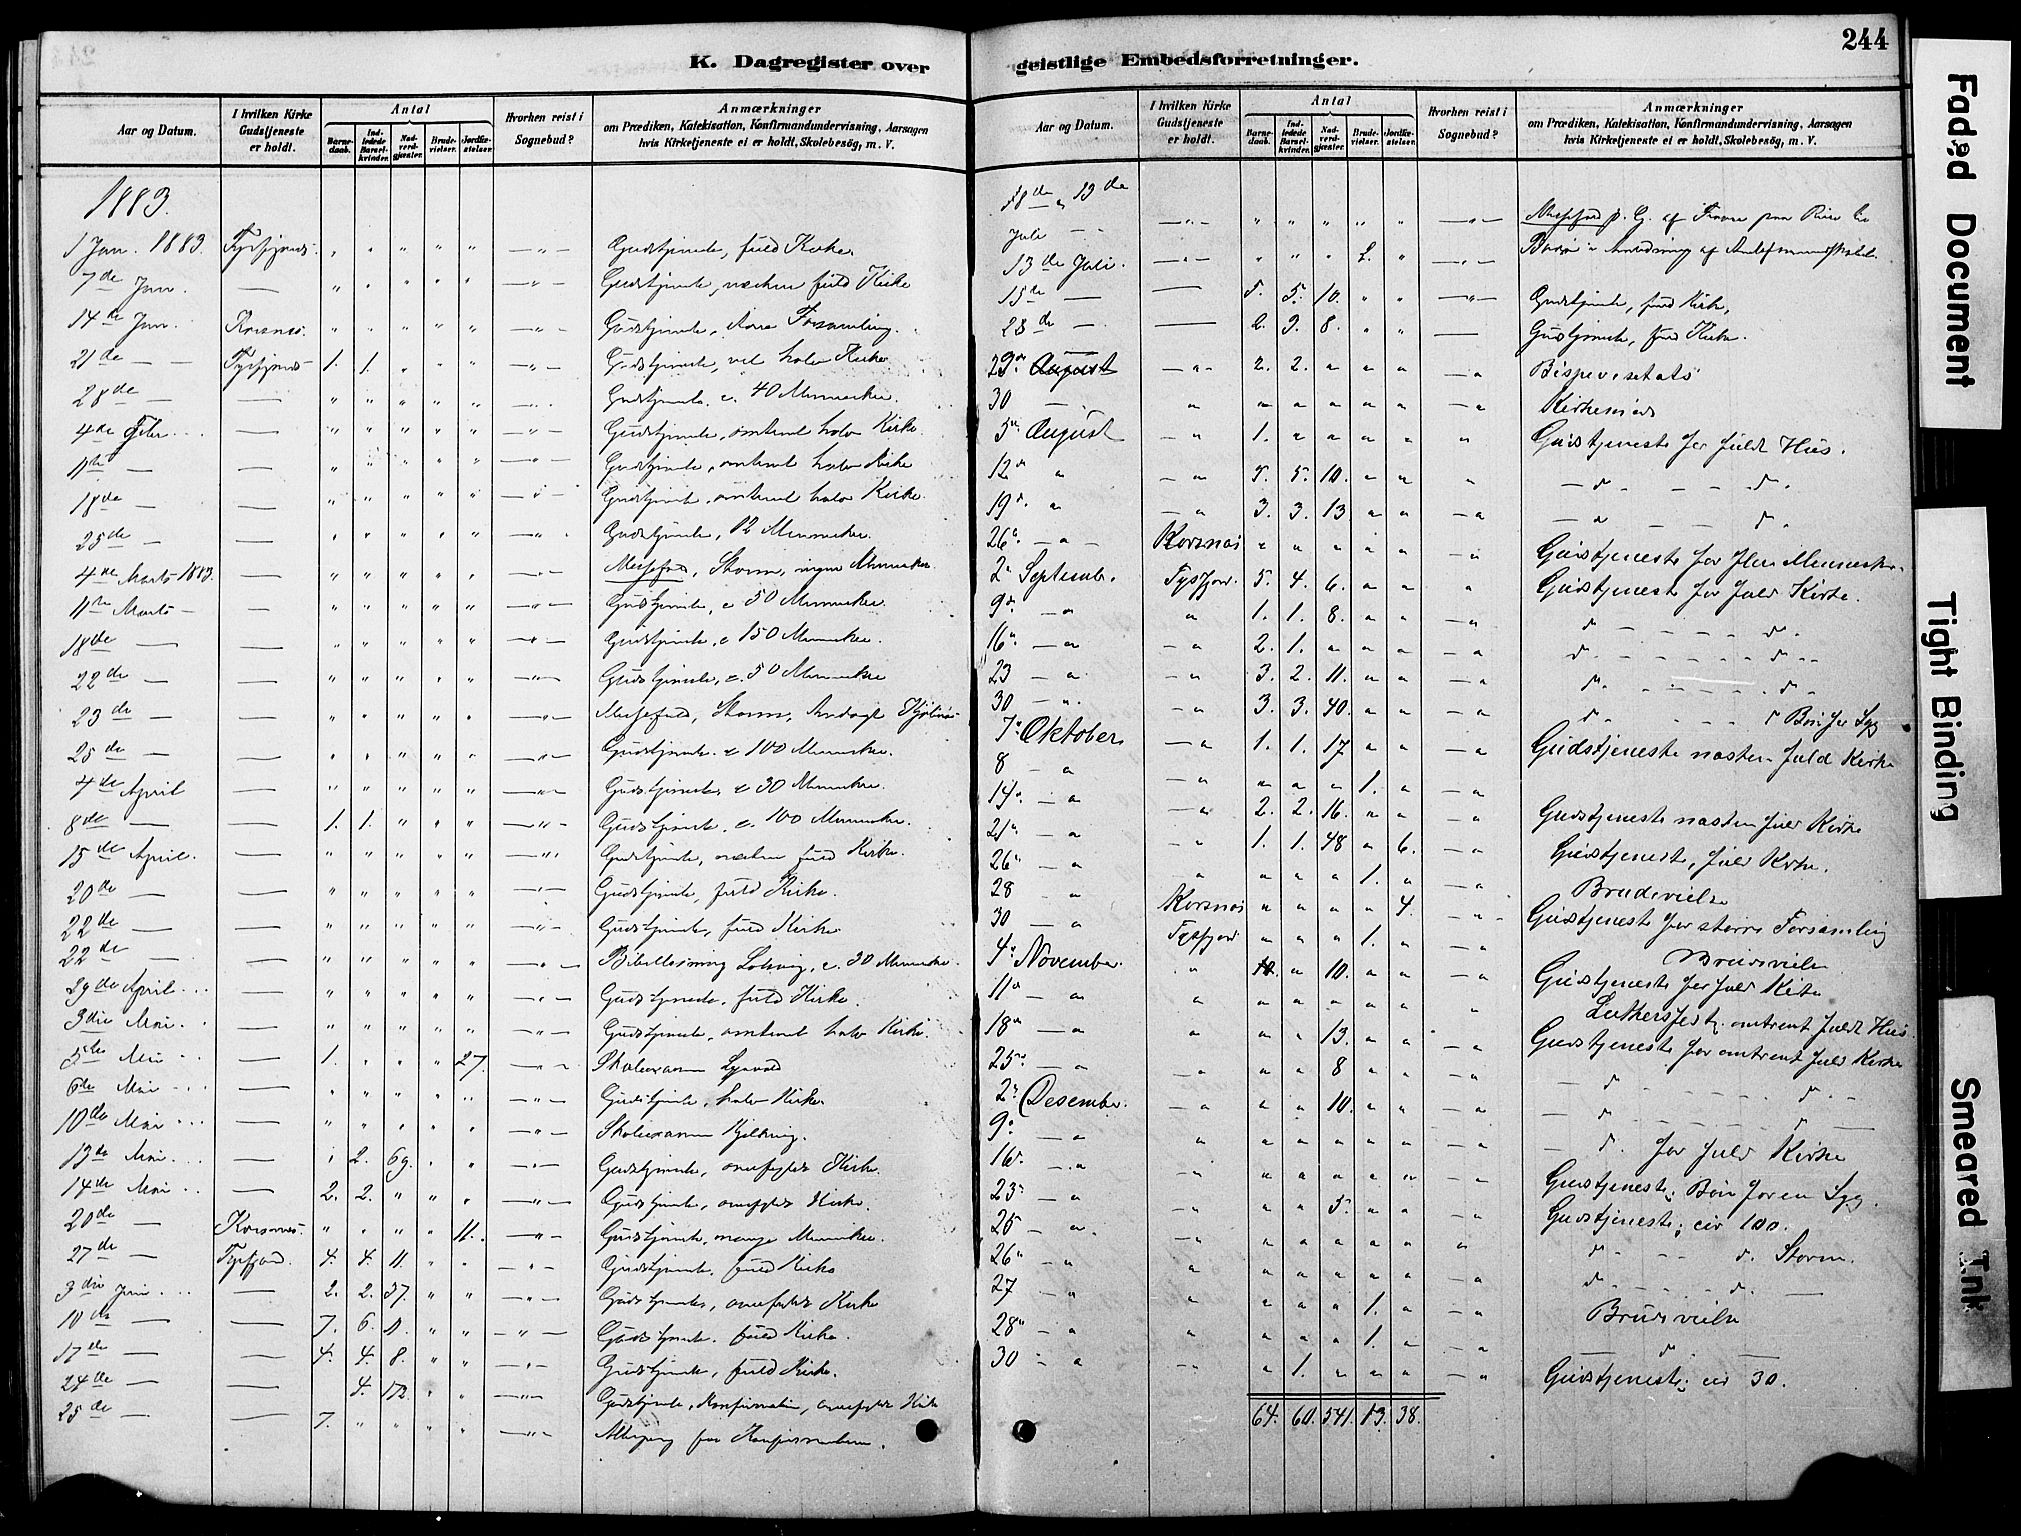 K. Dagregister over
Aar og Datum.
I hvilken Kirke Gudstjeneste er holdt.
Antal
Barnedaab.
Indledede Barselkvinder.
Nadverdgjæster.
Brudevielser.
Jordfæstelser.
Hvorhen reist i Sognebud?
Anmærkninger
om Prædiken, Katekisation, Konfirmandundervisning, Aarsagen
hvis Kirketjeneste ei er holdt, Skolebesög, m. V.
1883.
1 Jan. 1883. Gudstjeneste, fuld Kirke
7de Jan. — Gudstjeneste, næsten fuld Kirke
14de Jan. Korsnes. Gudstjeneste, Forsamling.
21de — 1. 1. Gudstjeneste, vel halv Kirke
28de — Gudstjeneste c. 40 Mennesker.
4de Febr. — Gudstjeneste, omtrent halv Kirke.
11te — Gudstjeneste, omtrent halv Kirke
18de — Gudstjeneste, omtrent halv Kirke.
25de — Gudstjeneste, 12 Mennesker.
4de Marts 1883. — Messefald, Storm, ingen Mennesker.
11te Marts — Gudstjeneste, c 50 Mennesker.
18de — Gudstjeneste, c 150 Mennesker.
22de — Gudstjeneste, c. 50 Mennesker
23de — Messefald, Storm, Andagt
25de — Gudstjeneste c 100 Mennesker.
4de April — Gudstjeneste c 30 Mennesker.
8de — 1. 1. Gudstjeneste, c. 100 Mennesker.
15de April. — Gudstjeneste, næsten fuld Kirke.
20de — Gudstjeneste, fuld Kirke.
22de — Gudstjeneste, fuld Kirke
22de — Bibellæsning c. 30 Mennesker.
29de April — Gudstjeneste, fuld Kirke.
3die Mai — Gudstjeneste, omtrent halv Kirke.
5te Mai — 1. 27. Skoleexamen
6te Mai — Gudstjeneste, halv Kirke
10de Mai — Skoleexamen
13de Mai — 2. 69. Gudstjeneste, overfyldt Kirke.
14de Mai — 2. 2. Gudstjeneste, overfyldt Kirke.
20de — Korsnes. 11. Gudstjeneste, mange Mennesker.
27de — Tysfjord. 4. 4. 11. Gudstjeneste, fuld Kirke
3die Juni — 2. 2. 37. Gudstjeneste, overfyldt Kirke
10de — 7. 6. Gudstjeneste. fuld Kirke.
17de — 4. 4. 8. Gudstjeneste, fuld Kirke.
24de — 4. 172. Gudstjeneste, Konfirmation, overfyldt Kirke
25de — 7. Altergang for Konfirmanterne.
244
geistlige Embedsforretninger.
Aar og Datum.
I hvilken Kirke Gudstjeneste er holdt.
Antal
Barnedaab.
Indledede Barselkvinder.
Nadverdgjæster.
Brudevielser.
Jordfæstelser.
Hvorhen reist i Sognebud?
Anmærkninger
om Prædiken, Katekisation, Konfirmandundervisning, Aarsagen
hvis Kirketjeneste ei er holdt, Skolebesög, m. V.
Juli Messefald p. G. af
13de Juli.
15de — 5. 5. 10. Gudstjeneste, fuld Kirke,
— 2. 8. Gudstjeneste, fuld Kirke.
29de August 2. 2. Bispevisitats
30 Kirkemøde
5te August 1. Gudstjeneste for fuldt Hus.
12te 5. 5. 10. — d. — d.
19de 3. 3. 13 — d — d.
26de Korsnæs Gudstjeneste for flere Mennesker.
2den September. Tysfjord. 5. 4. 6. Gudstjeneste for fuld Kirke.
9de 1. 1. 8. d — d.
16de 2. 1. d. — d.
23 3. 2. 11. d. — d.
30 3. 3. 40. d. — d Bøn for Syg
7de Oktober 1. 1. 17 Gudstjeneste næsten fuld Kirke
8 1.
14de 2. 2. 16. Gudstjeneste næsten fuld Kirke
21de 1. 1. 48 6. Gudstjeneste, fuld Kirke.
26de 1. Brudevielse
28 Korsnæs 4. Gudstjeneste for større Forsamling
30 Tysfjord 1. Brudevielse
4de November. 10. Gudstjeneste for fuld Kirke
11te Luthersfest, omtrent fuldt Hus.
18de 13. Gudstjeneste for omtrent fuld Kirke
25de 8 — d — d.
2den Desember. 10. — d — d
9de — d. for fuld Kirke
16de Gudstjeneste; Bøn for en Syg.
23de 5. Gudstjeneste; cir 100.
25 d. — d. Storm.
26de d. — d.
27 1. Brudevielse
28de 1. — d. —
30 1. Gudstjeneste; cir 30.
64. 60. 541. 13. 38.
Faded Document
Tight Binding
Smeared Ink